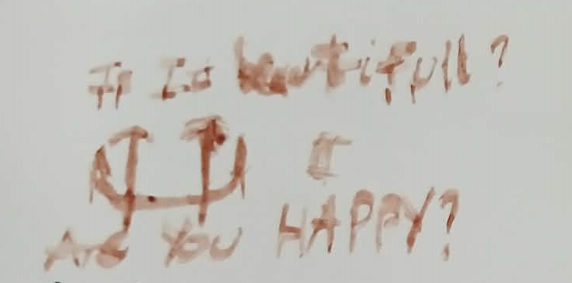 It Is beautifull?
I
Are You HAPPY?